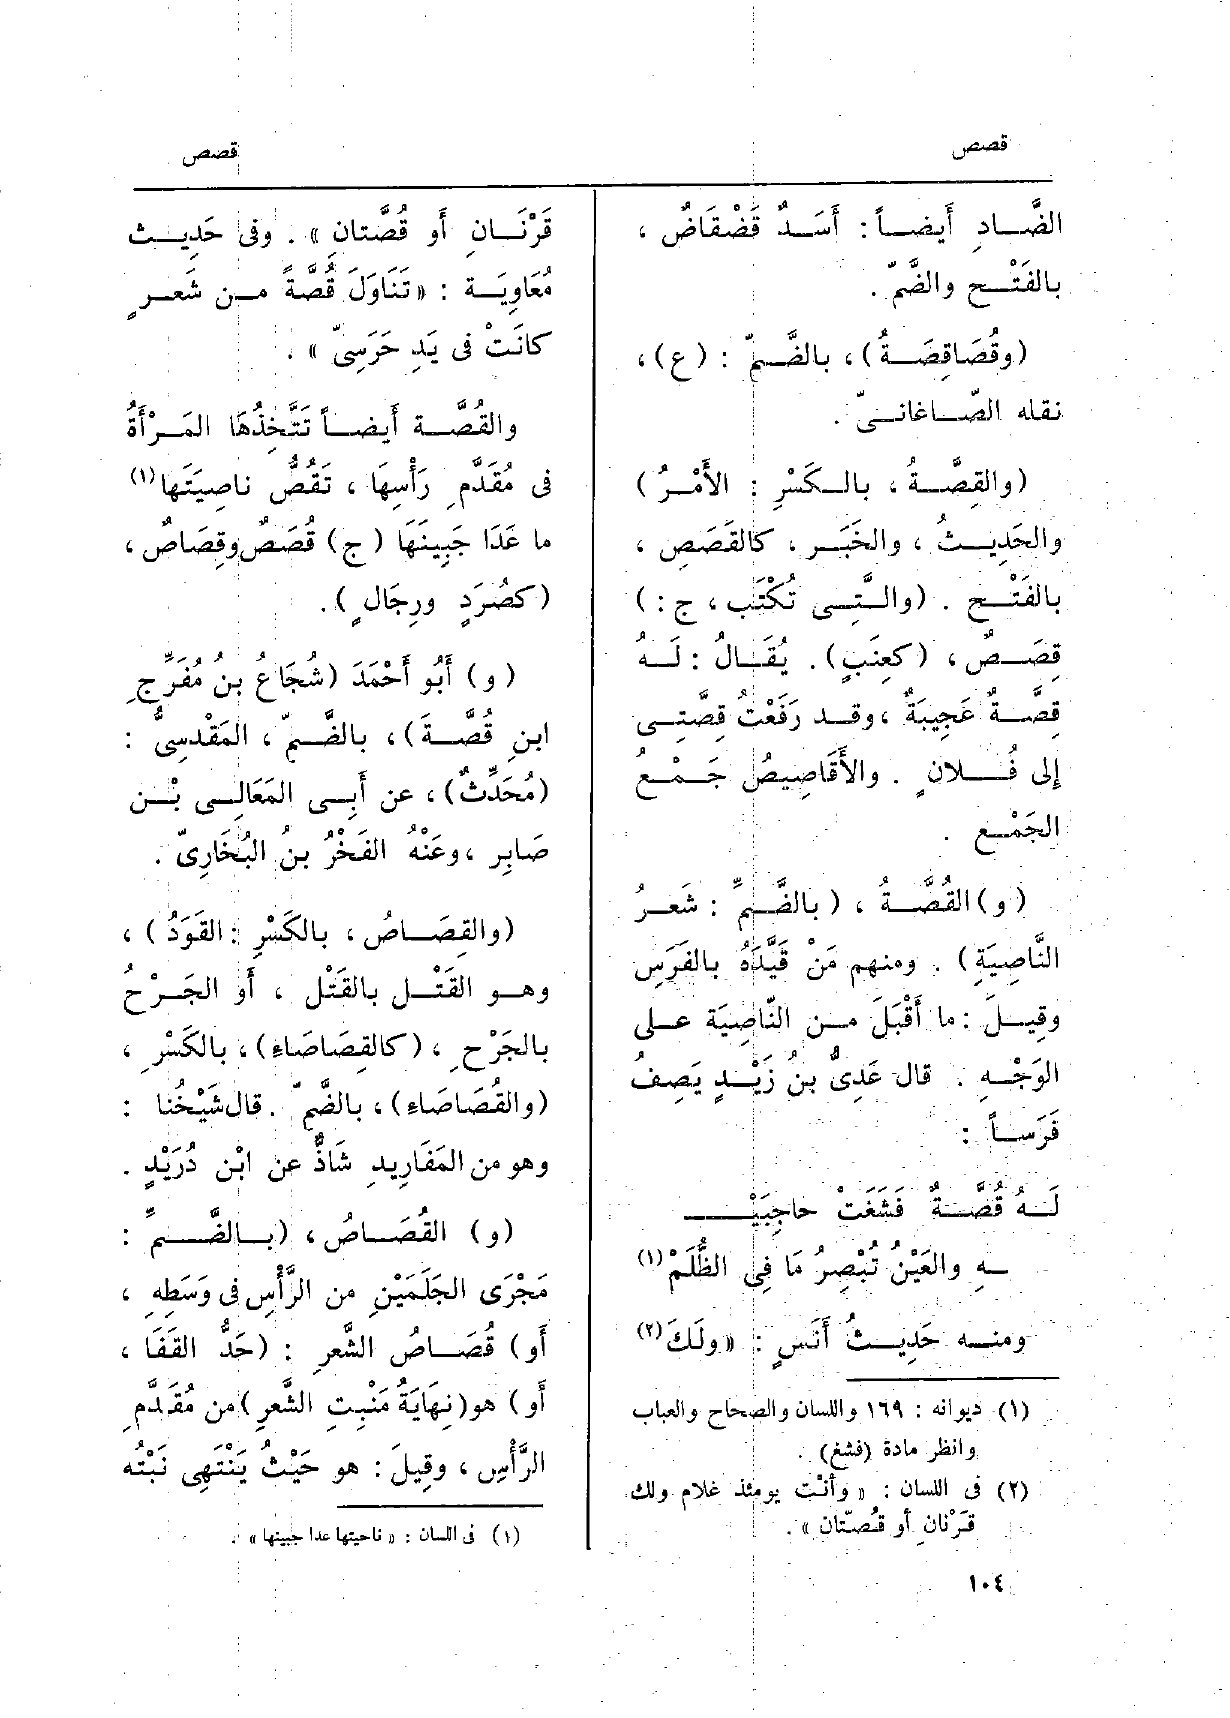 قصص
قصص
الضَّادِ أَيضاً: أَسَدٌ قَضْقَاضٌ ،
بالفَتْح والضَّمّ .
(وقُصَاقِصَةُ)، بالضَّمّ : (ع)،
نقله الصّاغانىّ .
(والقِصَّةُ ، بالكَسْرِ : الأَمْرُ)
والحَدِيثُ ، والخَبَر ، كالقَصَصِ ،
بالفَتْح . (والَّتِى تُكْتَب ، ج :)
قِصَصٌ ، (كعِنَبٍ). يُقَالُ : لَهُ
قِصَّةٌ عَجِيبَةٌ ، وقد رَفَعْتُ قِصَّتِى
إلى فُلانٍ . والأَقَاصِيصُ جَمْعُ
الجَمْع .
(و) القُصَّةُ ، (بالضَّمِّ : شَعرُ
النَّاصِيَةِ) . ومنهم مَنْ قَيَّدَهُ بالفَرَسِ
وقِيلَ : ما أَقْبَلَ من النَّاصِيَة على
الوَجْهِ . قال عَدِىُّ بنُ زَيْدٍ يَصِفُ
فَرَساً :
لَهُ قُصَّةٌ فَشَغَتْ حاجِبَيْـ
ـهِ والعَيْنُ تُبْصِرُ مَا فِى الظُّلَمْ (١)
ومنه حَدِيثُ أَنَسٍ : « ولَكَ (٢)
(١) ديوانه : ١٦٩ واللسان والصحاح والعباب
وانظر مادة (فشغ) .
(٢) فى اللسان : « وأنْت يومئذ غلام ولك
قَرْنانِ أو قُصّتان » .
١٠٤
قَرْنَانِ أو قُصَّتانِ » . وفى حَدِيث
مُعَاوِيَة : « تَنَاوَلَ قُصَّةً من شَعرٍ
كانَتْ فى يَدِ حَرَسِىّ » .
والقُصَّة أَيضاً تَتَّخِذُهَا المَرْأَةُ
فى مُقَدَّمِ رَأْسِهَا ، تَقُصُّ ناصِيَتَها (١)
ما عَدَا جَبِينَهَا (ج) قُصَصٌ وقِصَاصٌ ،
(كصُرَدٍ ورِجَالٍ) .
(و) أَبُو أَحْمَدَ (شُجَاعُ بنُ مُفَرِّجِ
ابنِ قُصَّةَ)، بالضَّمّ ، المَقْدِسِىُّ :
(مُحَدِّثٌ)، عن أَبِى المَعَالِى بْن
صَابِر ، وعَنْهُ الفَخْرُ بنُ البُخَارِىّ .
(والقِصَاصُ ، بالكَسْرِ : القَوَدُ) ،
وهو القَتْل بالقَتْل ، أَو الجَرْحُ
بالجَرْحِ ، (كالقِصَاصَاءِ)، بالكَسْرِ ،
(والقُصَاصَاءِ)، بالضَّمّ . قال شَيْخُنا :
وهو من المَفَارِيدِ شَاذٌّ عن ابْن دُرَيْدٍ .
(و) القُصَاصُ ، (بالضَّمِّ :
مَجْرَى الجَلَمَيْنِ من الرَّأْسِ فى وَسَطِهِ ،
أو) قُصَاصُ الشَّعرِ : (حَدُّ القَفَا ،
أو) هو (نِهَايَةُ مَنْبِتِ الشَّعرِ) من مُقَدَّمِ
الرَّأْسِ ، وقِيلَ : هو حَيْثُ يَنْتَهِى نَبْتُه
(١) فى اللسان : « ناحيتها عدا جبينها » .